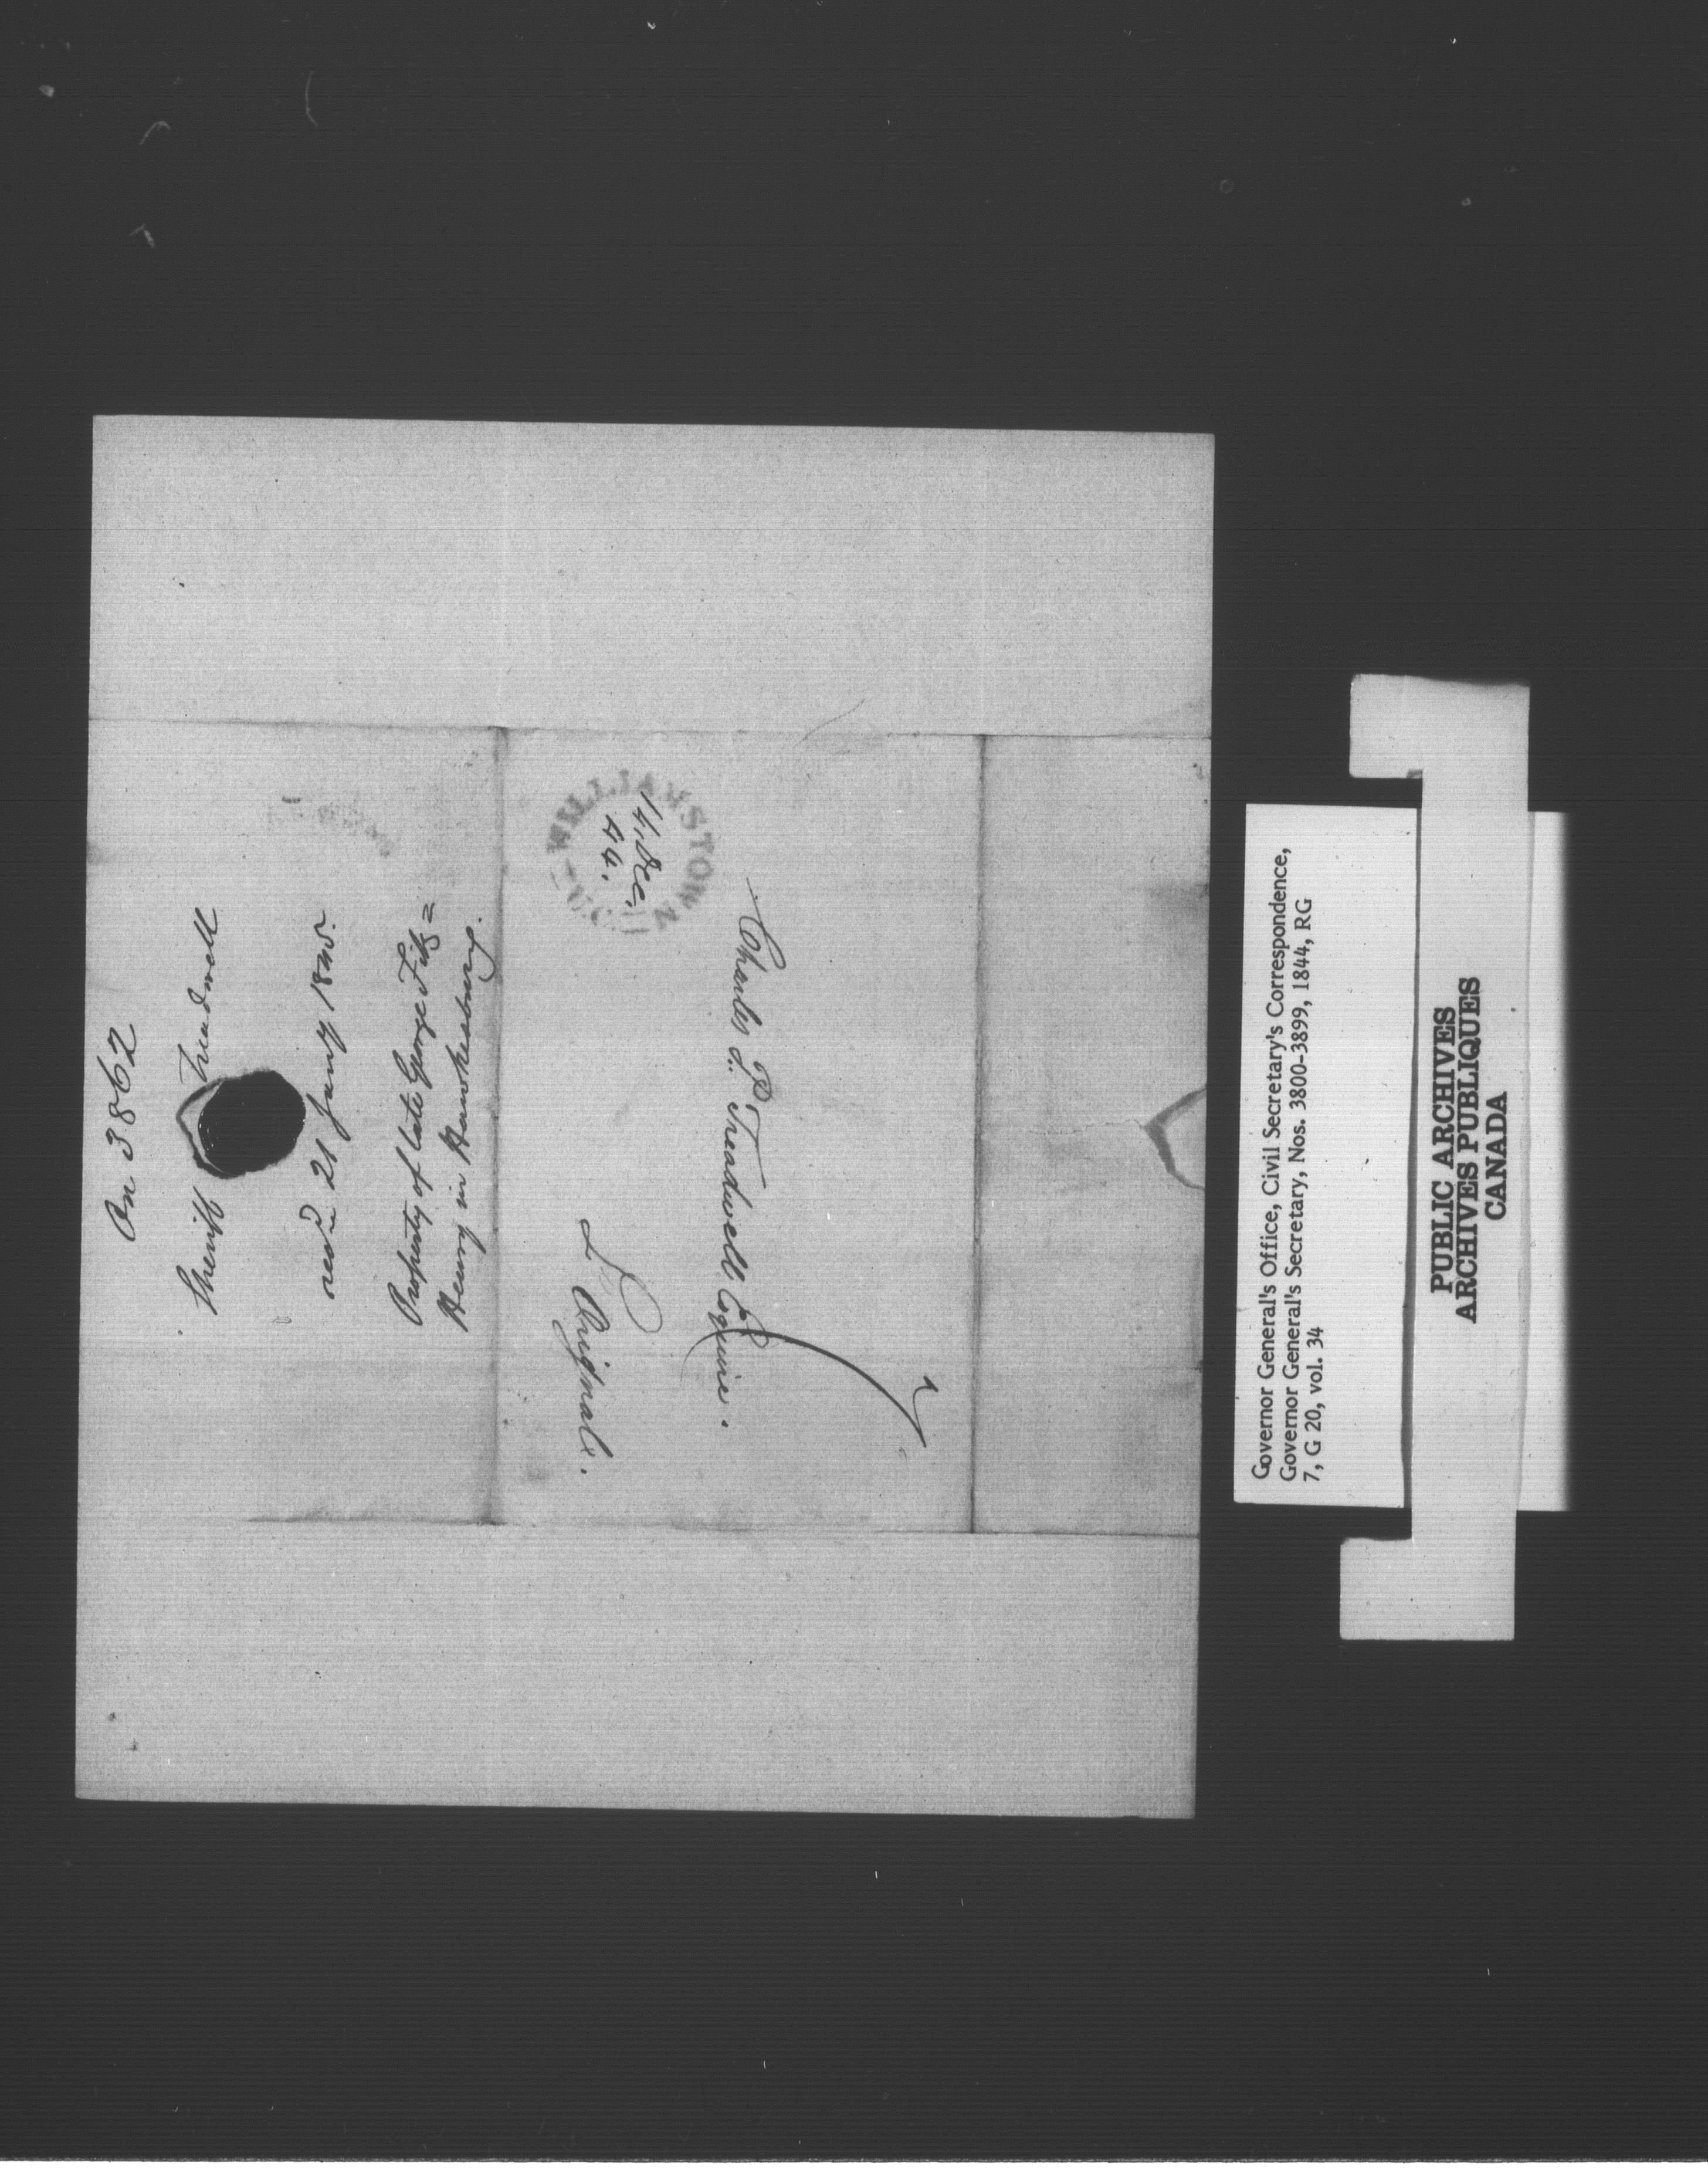 On 3862
Sheriff Treadwell
recd 21 Jany 1845.
Property of late George Fitz=
Henry in Hawkesbury.
WILLIAMSTOWN U.C.
14, Dec,
44.
Charles P. Treadwell Esquire.
L'Orignal.
Governor General's Office, Civil Secretary's Correspondence,
Governor General's Secretary, Nos. 3800-3899, 1844, RG
7, G 20, vol. 34
PUBLIC ARCHIVES
ARCHIVES PUBLIQUES
CANADA